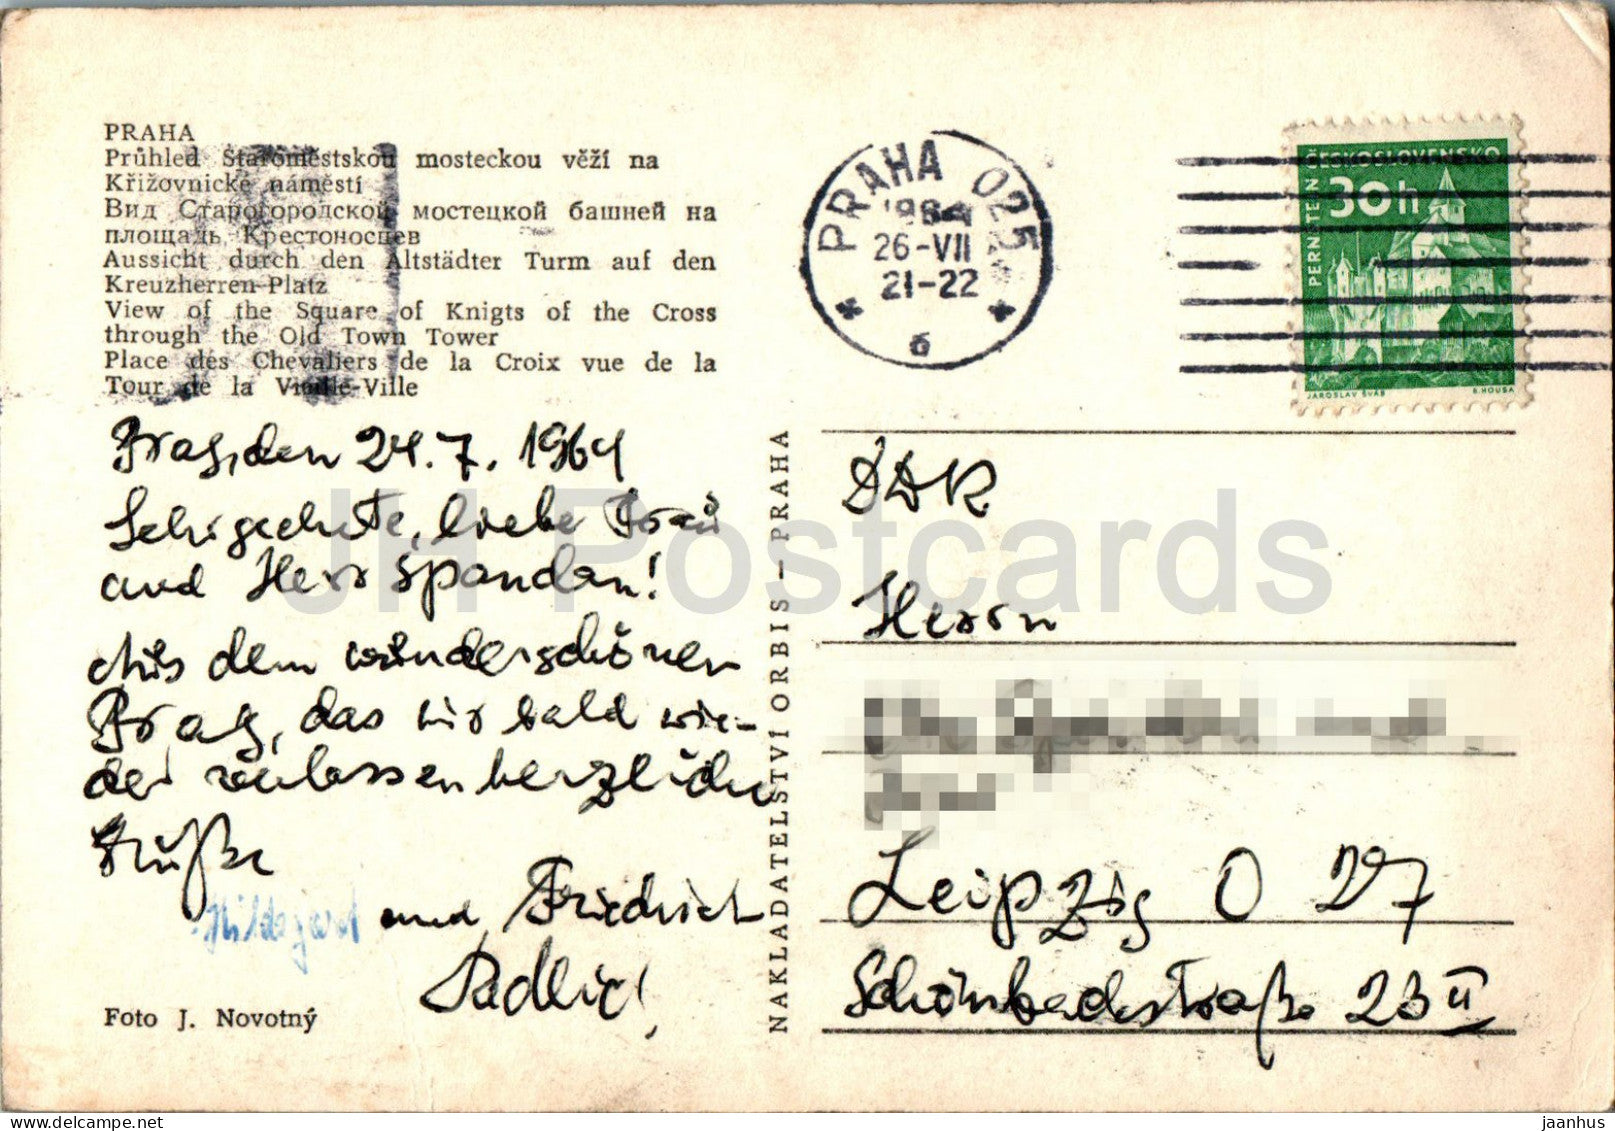 PRAHA
Průhled Staroměstskou mosteckou věží na
Křižovnické náměstí
Вид Старогородской мостецкой башней на
площадь Крестоносцев
Aussicht durch den Altstädter Turm auf den
Kreuzherren-Platz
View of the Square of Knigts of the Cross
through the Old Town Tower
Place des Chevaliers de la Croix vue de la
Tour de la Vieille-Ville
Prag, den 24.7.1964
Sehr geehrte, liebe Frau
und Herr Spandau!
Aus dem wunderschönen
Prag, das wir bald wie-
der verlassen herzliche
Grüße
Hildegard und Friedrich
Foto J. Novotný
NAKLADATELSTVÍ ORBIS – PRAHA
PRAHA 025
1964
26-VII
21-22
6
ČESKOSLOVENSKO
30h
PERNŠTEJN
JAROSLAV ŠVÁB
B. HOUSA
DDR
Herrn
Leipzig O 27
Schönbachstraße 23 II
JH Postcards
jaanhus